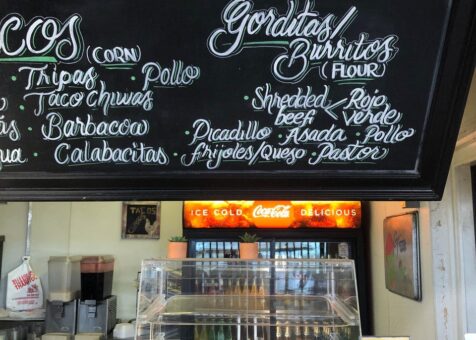 (CORN)
Gorditas/
Burritos
(FLOUR)
· Tripas · Pollo
· Taco Chiwas
· Barbacoa
Calabacitas ·
Shredded beef < Rojo verde
· Picadillo · Asada · Pollo
· frijoles/Queso · Pastor ·
TACOS
ICE COLD Coca-Cola DELICIOUS